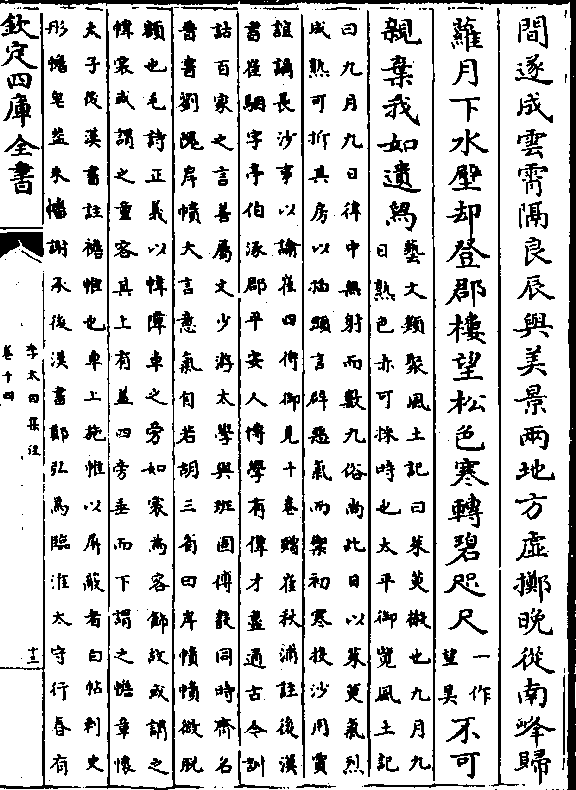 間遂成雲霄隔良辰與美景兩地方虛擲晚從南峰歸
蘿月下水壁却登郡樓望松色寒轉碧咫尺一作望美不可
親棄我如遺舄藝文類聚風土記曰茱萸椒也九月九
日熟色赤可採時也太平御覽風土記
曰九月九日律中無射而數九俗尚此日以茱萸氣烈
成熟可折其房以插頭言辟惡氣而禦初寒投沙用賈
誼謫長沙事以諭崔四侍御見十卷贈崔秋浦註後漢
書崔駰字亭伯涿郡平安人博學有偉才盡通古今訓
詁百家之言善屬文少游太學與班固傅毅同時齊名
晉書劉隗岸幘大言意氣自若胡三省曰岸幘幘微脫
額也毛詩正義以幃障車之旁如裳為容飾故或謂之
幃裳或謂之童容其上有蓋四旁垂而下謂之襜章懷
太子後漢書註襜帷也車上施帷以屏蔽者白帖刺史
彤幨皂蓋朱幡謝承後漢書鄭弘為臨淮太守行春有
欽定四庫全書
李太白集注
卷十四
十三